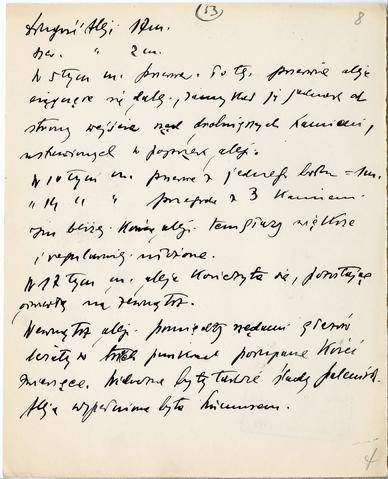 (53) 8
Długość Alej. 17 m.
Szer. " 2 m.
W 5 tym m. przerwa. Po tej przerwie aleja
ciągnęła się dalej, zamykał ją jednak od
strony wejścia rząd drobniejszych kamieni,
ustawionych w poprzek alei.
W 10 tym m. przerwa z jednego boku – 1 m.
" 14 " " przegroda z 3 kamieni.
Im bliżej końca alei tem głazy większe
i regularniej ułożone.
W 17 tym m. aleja kończyła się, pozostając
otwartą na zewnątrz.
Wewnątrz alej. pomiędzy rzędami głazów
leżały w punktach porąbane kości
zwierzęce. Widoczne były także ślady palenisk.
Aleja wypełniona była humusem.
4